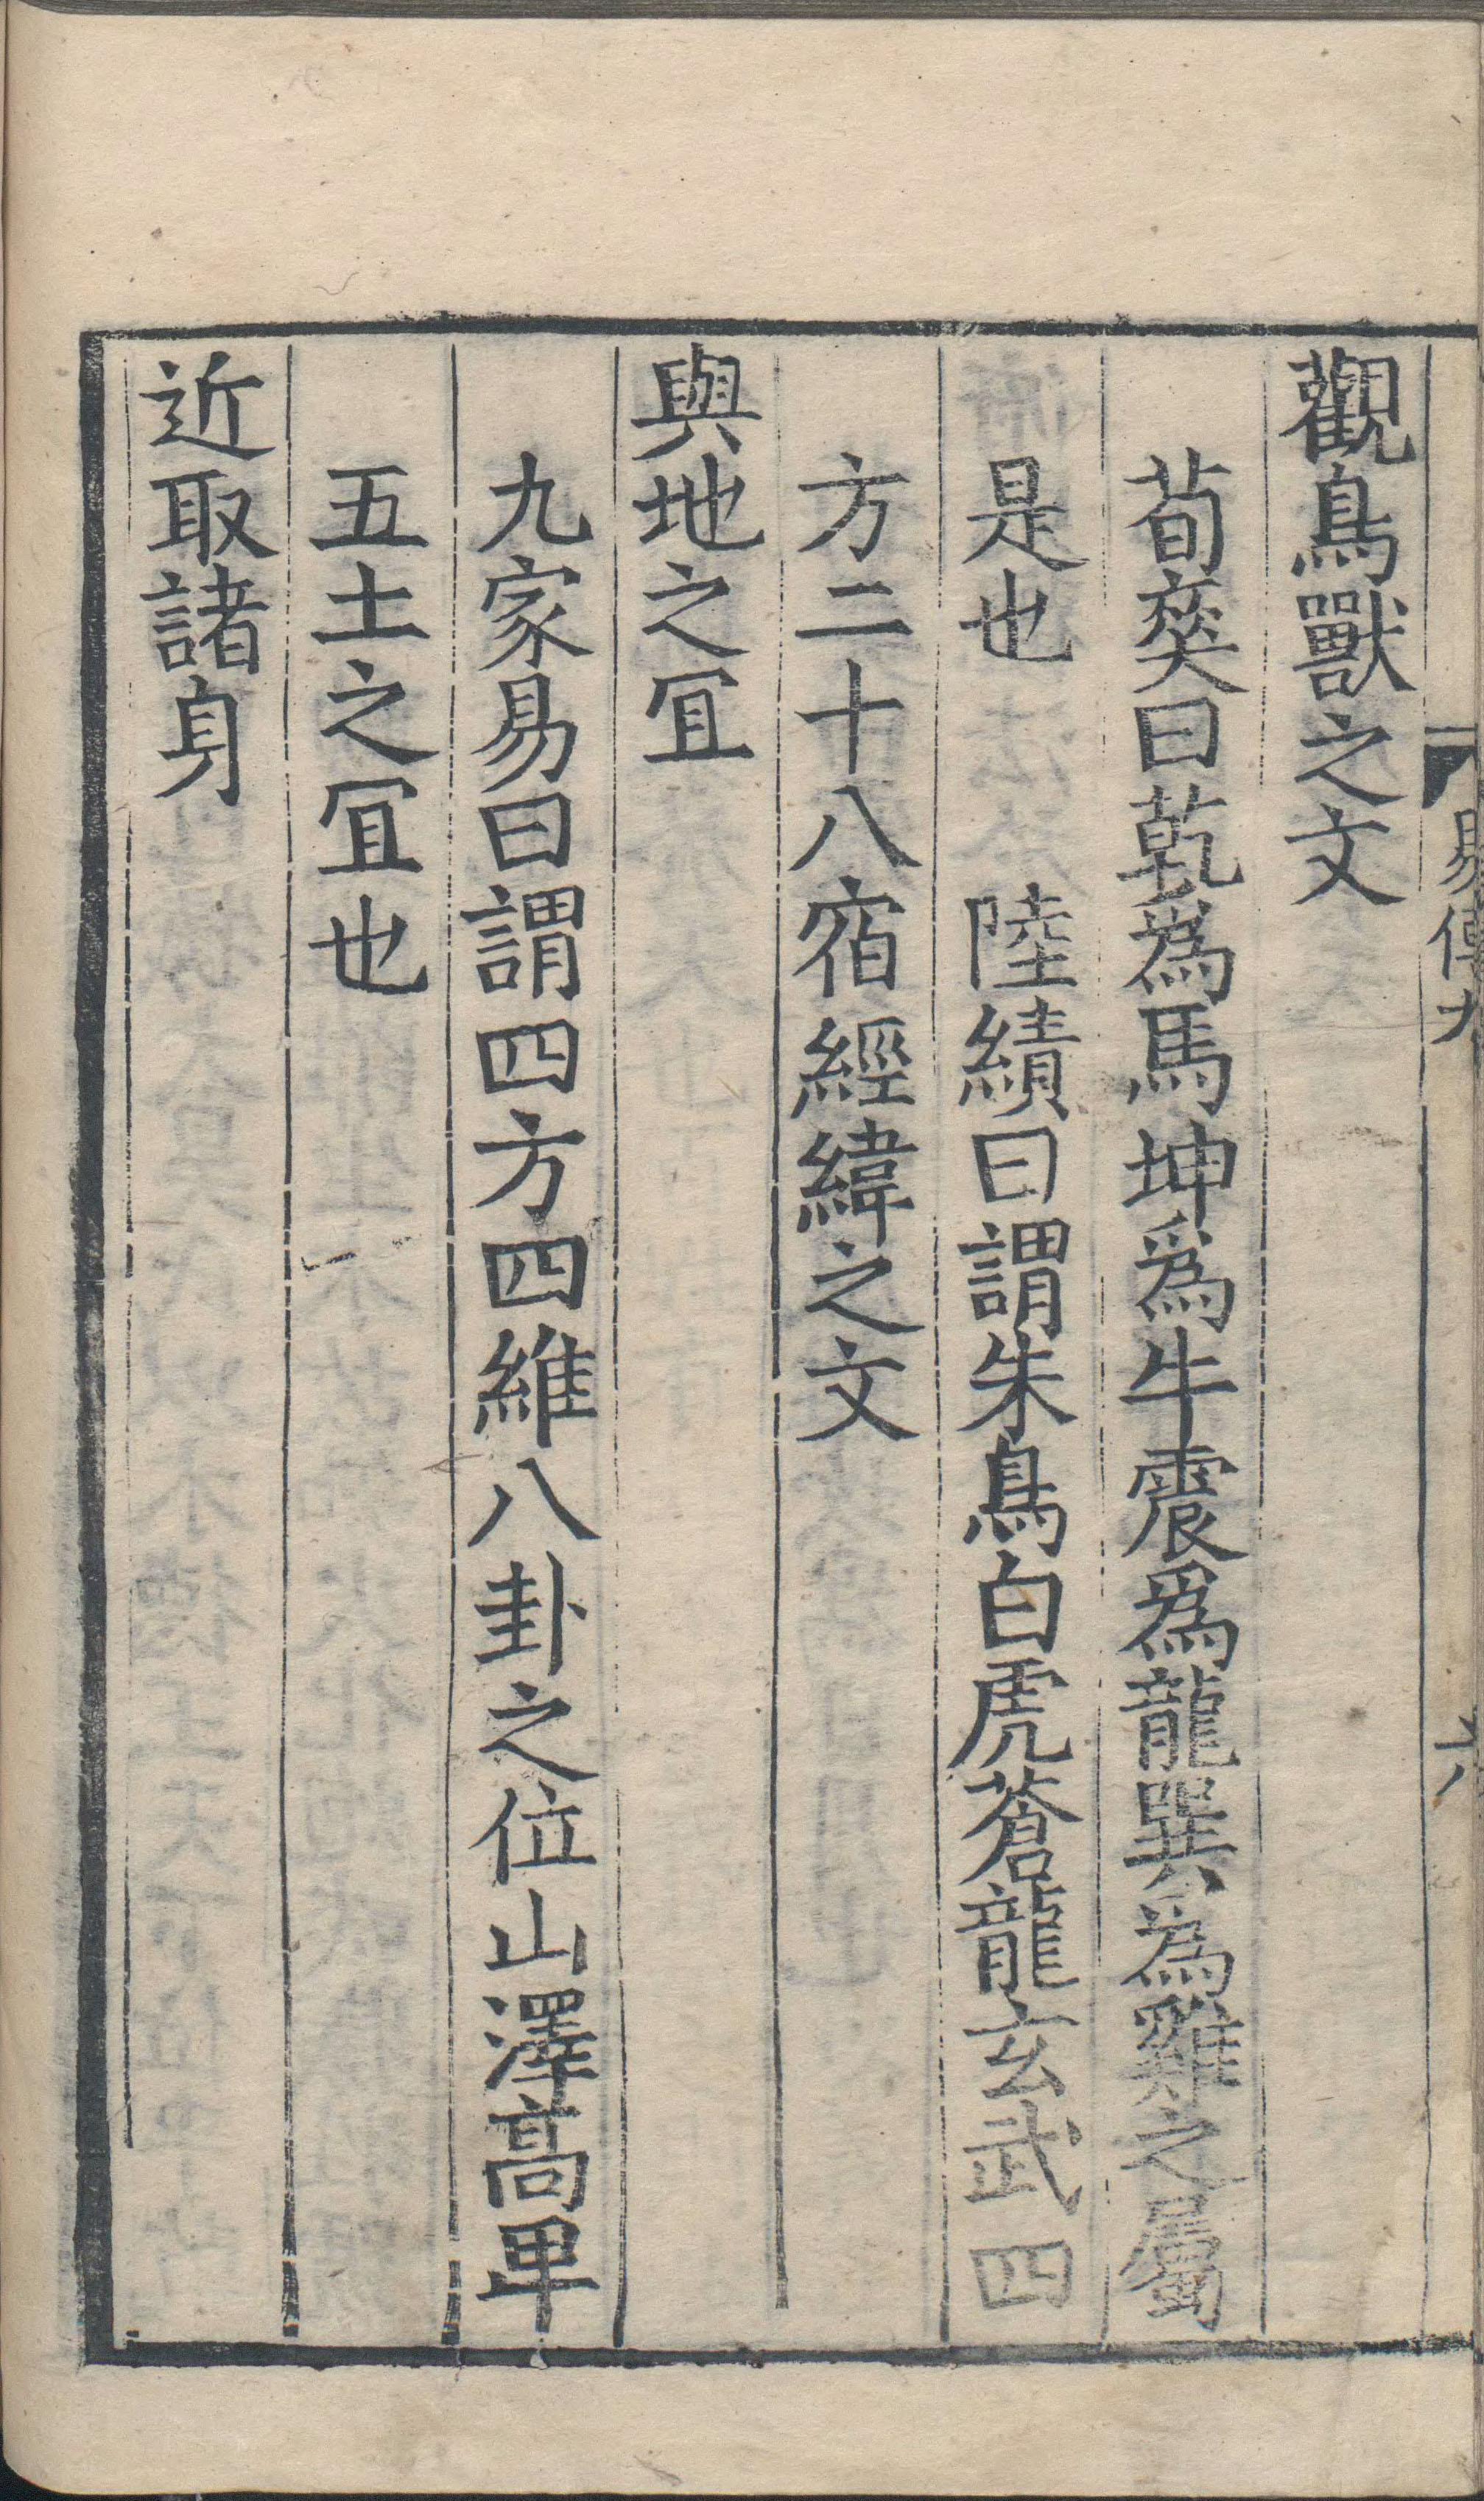 觀鳥獸之文
荀奭曰乾為馬坤爲牛震爲龍巽為雞之屬
是也　陸績曰謂朱鳥白虎蒼龍玄武四
方二十八宿經緯之文
與地之冝
九家易曰謂四方四維八卦之位山澤高卑
五土之冝也
近取諸身
易傳九
六